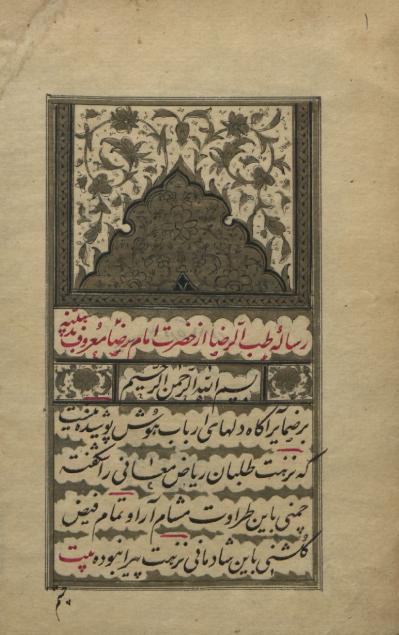 رسالهٔ طب الرضا از حضرت امام رضا معروف بذهبیه
بسم الله الرحمن الرحیم
بر ضمایر آگاه دلهای ارباب هوش پوشیده نیست
که نزهت طلبان ریاض معانی را شگفته
چمنی باین طراوت مشام آرا و تمام فیض
گلشنی باین شادمانی نزهت پیرا نبوده بیت